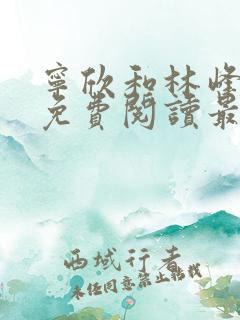 寧欣和林峰
免費閱讀最
西域行者
未经同意禁止转载